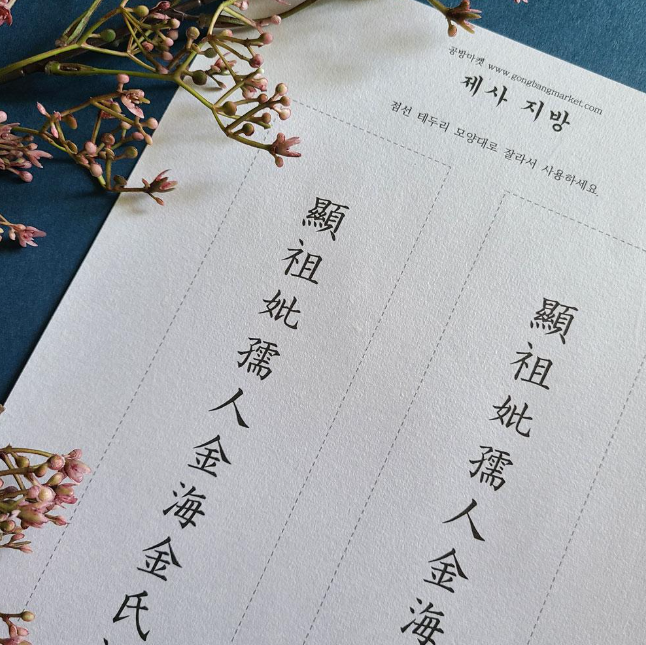 공방마켓 www.gongbangmarket.com
제사 지방
점선 테두리 모양대로 잘라서 사용하세요.
顯祖妣孺人金海金氏
顯祖妣孺人金海